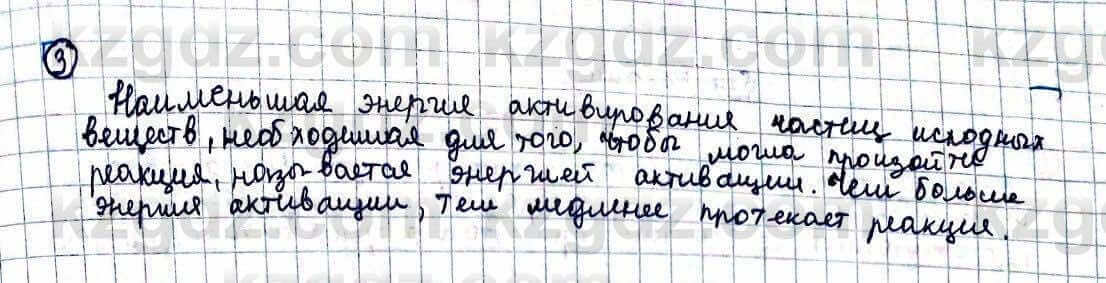 3
Наименьшая энергия активирования частиц исходных
веществ, необходимая для того, чтобы могла произойти
реакция, называется энергией активации. Чем больше
энергия активации, тем медленее протекает реакция.
kzgdz.com